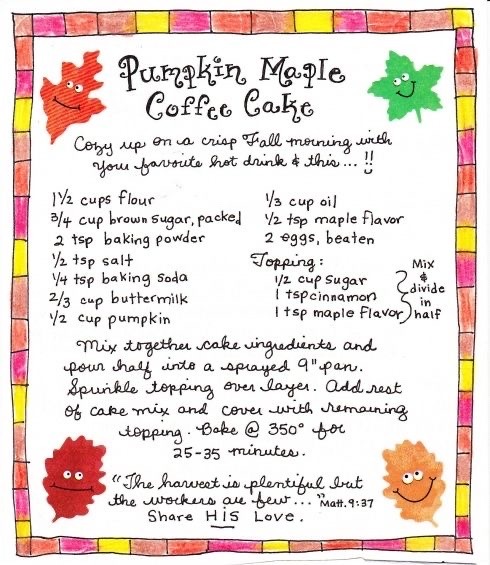 Pumpkin Maple
Coffee Cake
Cozy up on a crisp Fall morning with
your favorite hot drink & this... !!
1½ cups flour
3/4 cup brown sugar, packed
2 tsp baking powder
½ tsp salt
¼ tsp baking soda
2/3 cup buttermilk
½ cup pumpkin
⅓ cup oil
½ tsp maple flavor
2 eggs, beaten
Topping:
1/2 cup sugar
1 tsp cinnamon
1 tsp maple flavor
Mix
&
divide
in
half
Mix together cake ingredients and
pour half into a sprayed 9" pan.
Sprinkle topping over layer. Add rest
of cake mix and cover with remaining
topping. Bake @ 350° for
25-35 minutes.
"The harvest is plentiful but
the workers are few..." Matt. 9:37
Share HIS Love.